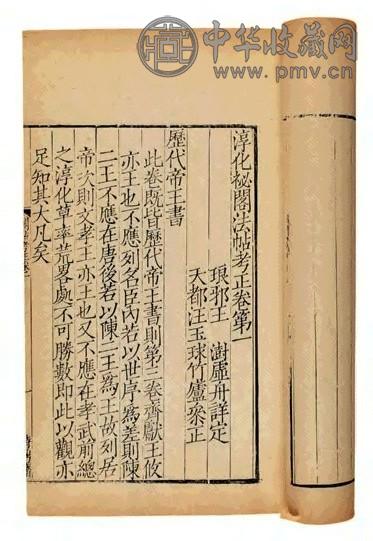 中华收藏网
www.pmv.cn
淳化祕閣法帖考正卷第一
琅邪王澍虛舟詳定
天都汪玉球竹廬叅正
歷代帝王書
此卷旣皆歷代帝王書則第二卷齊獻王攸
亦王也不應列名臣內若以世序為差則陳
二王不應在唐後若以陳二王為王故列居
帝次則文孝王亦王也又不應在孝武前總
之淳化草率荒畧處不可勝數即此以觀亦
足知其大凡矣